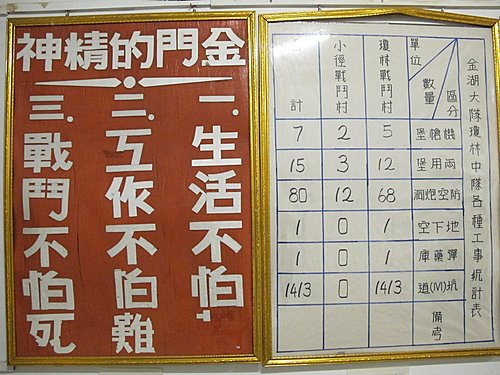 金門的精神
一.生活不怕
二.工作不怕難
三.戰鬥不怕死
金湖大隊瓊林中隊各種工事統計表
區分 數量 單位
瓊林戰鬥村 小徑戰鬥村 計
機槍堡 5 2 7
兩用堡 12 3 15
防空炮洞 68 12 80
地下空 1 0 1
彈藥庫 1 0 1
坑(M)道 1413 0 1413
備考